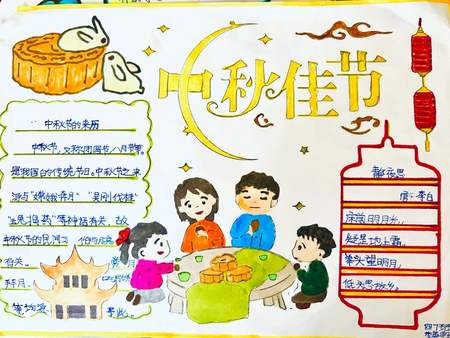 中秋佳节
中秋节的来历
中秋节，又称团圆节、八月节等，
是我国的传统节日。中秋节之来
源与"嫦娥奔月""吴刚伐桂"
"玉兔捣药"等神话有关，故
中秋节的民间习
有关。
拜月
静夜思
唐·李白
床前明月光，
疑是地上霜。
举头望明月，
低头思故乡。